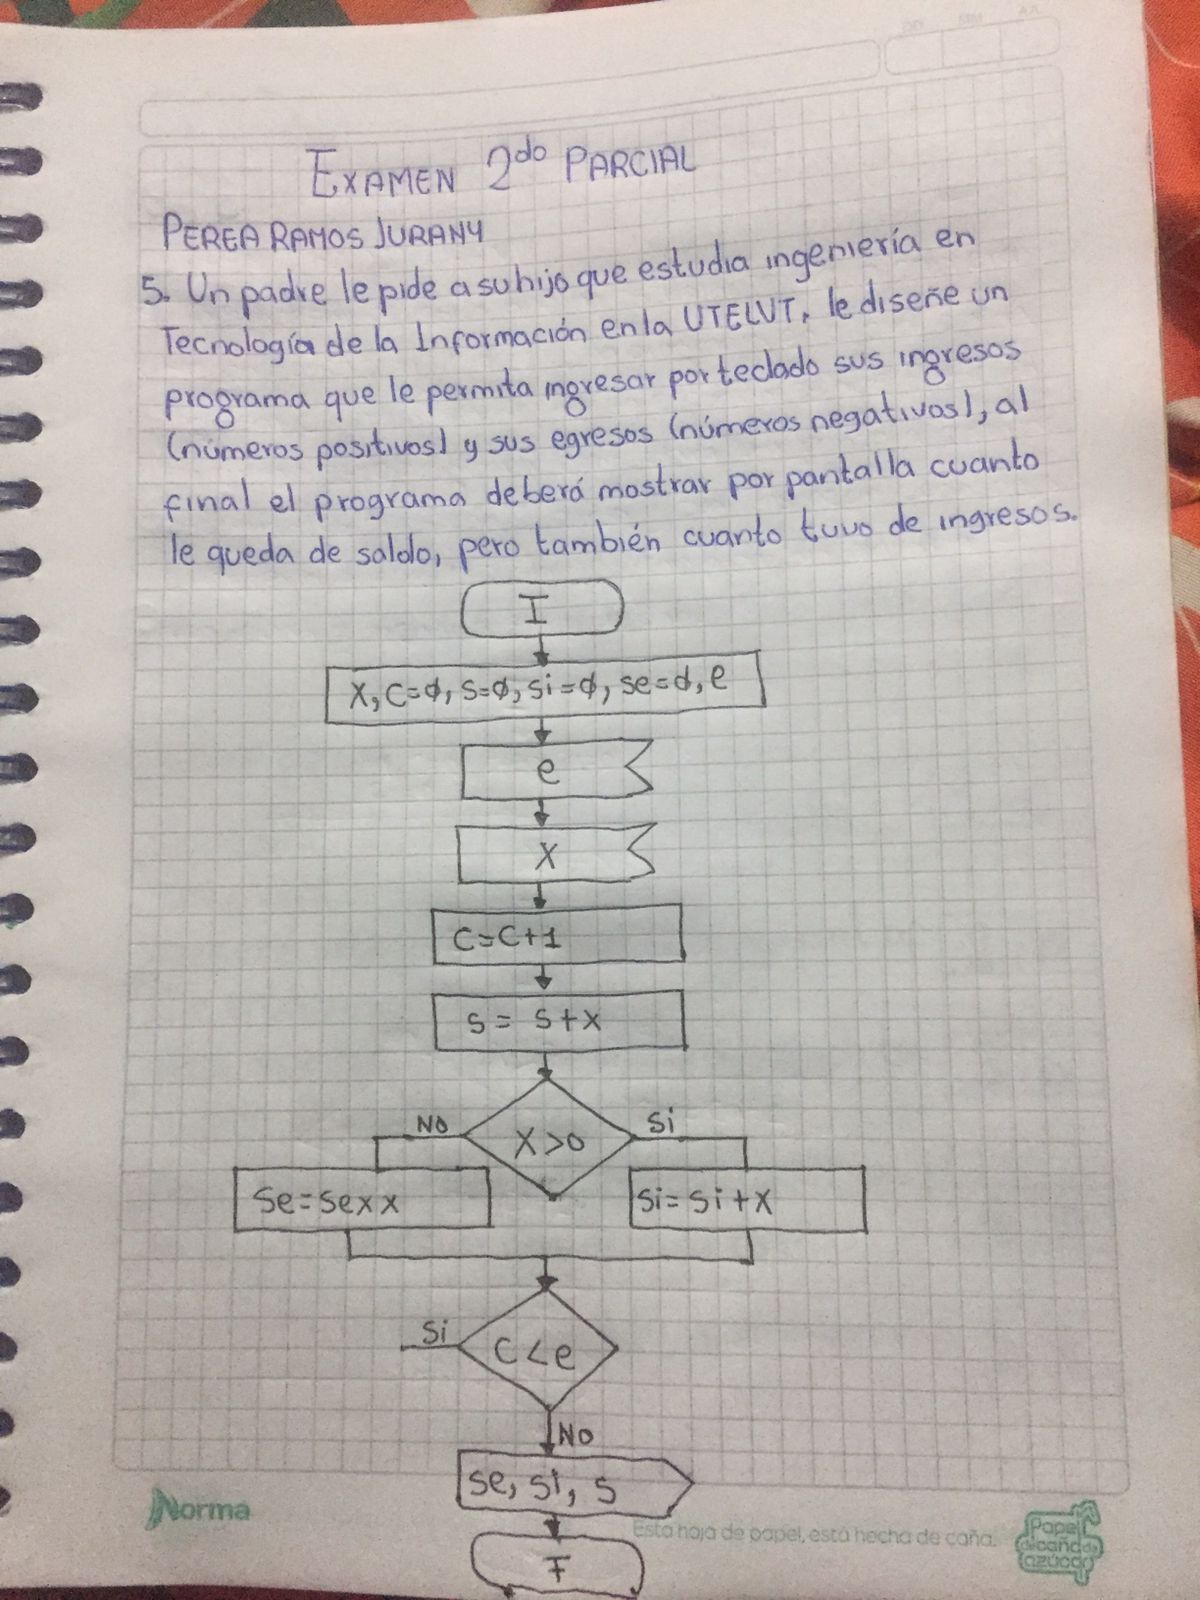 EXAMEN 2do PARCIAL
PEREA RAMOS JURANY
5. Un padre le pide a su hijo que estudia ingeniería en
Tecnología de la Información en la UTELVT, le diseñe un
programa que le permita ingresar por teclado sus ingresos
(números positivos) y sus egresos (números negativos), al
final el programa deberá mostrar por pantalla cuanto
le queda de saldo, pero también cuanto tuvo de ingresos.
I
X, C=0, S=0, si=0, se=0, e
e
X
C=C+1
S= S+X
NO X>0 Si
Se=sexx
Si=Si+X
Si C<e
NO
se, si, s
F
Norma
Esta hoja de papel, está hecha de caña.
Papel
de caña de
azúcar